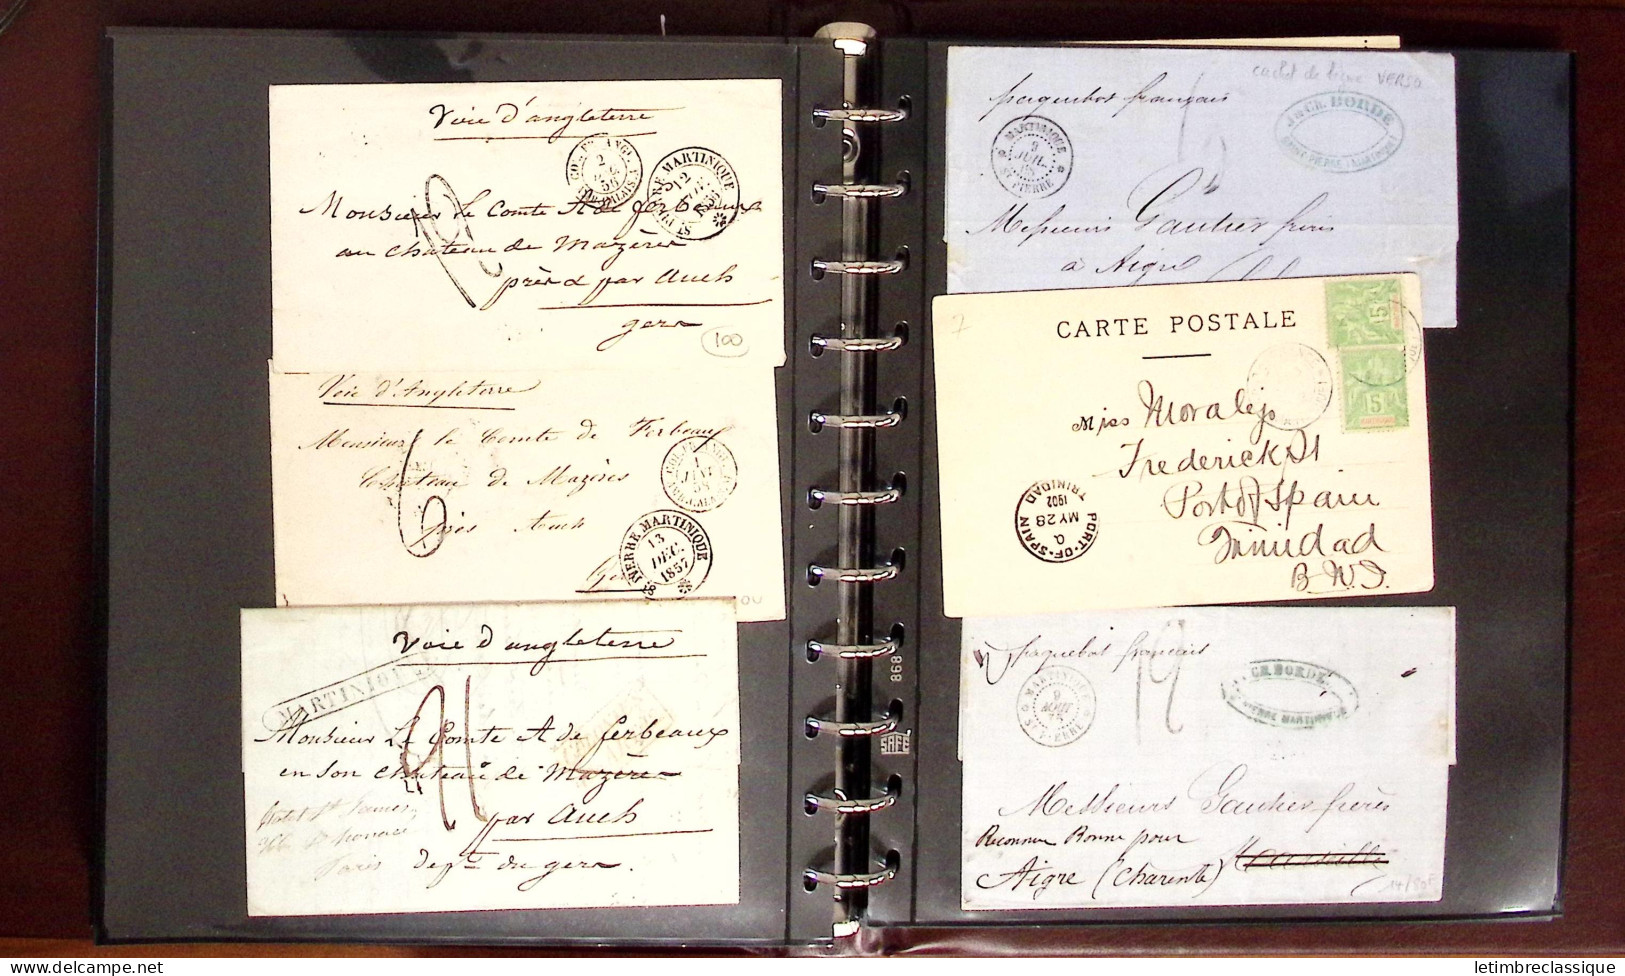 Voie d'angleterre
COL. FR. ANGL.
2
ST PIERRE MARTINIQUE
12
Monsieur le Comte A de ferbeaux
au chateau de Mazères
près & par Auch
gers
100
Voie d'Angleterre
Monsieur le Comte de Ferbeaux
Château de Mazères
près Auch
1
JANV
58
ST PIERRE MARTINIQUE
13
DEC.
1857
Voie d'angleterre
MARTINIQUE
Monsieur Le Comte A de ferbeaux
en son chateau de Mazères
par Auch
dept du gers.
Paris
868
SAFE
cachet de ligne VERSO
paquebot français
MARTINIQUE
9
JUIL.
68
ST PIERRE
BORDE
SAINT PIERRE (MARTINIQUE)
Messieurs Gautier frères
à Aigre
7
CARTE POSTALE
5
5
Miss Moralejs
Frederick St
Port of Spain
Trinidad
B.W.I.
PORT-OF-SPAIN
Q
MY 28
1902
TRINIDAD
paquebot français
MARTINIQUE
9
AOUT
75
ST PIERRE
12
CH. BORDE
ST PIERRE MARTINIQUE
Messieurs Gautier frères
Reconnu Bonne pour
Aigre (Charente) Marseille
delcampe.net
letimbreclassique